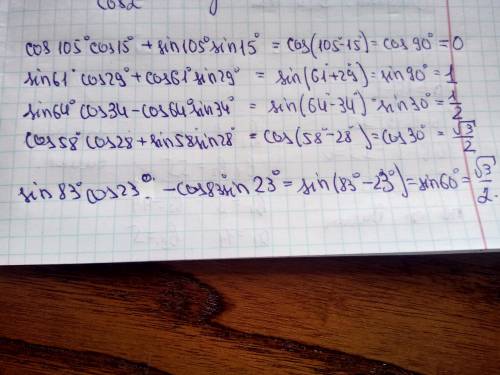 cos2
cos105°cos15° + sin105°sin15° = cos(105°-15°)=cos90°=0
sin61° cos29°+cos61° sin29° = sin(61°+29°)=sin90°=1
sin64° cos34-cos64° sin34° = sin(64°-34°)=sin30°=1/2
cos58° cos28+sin58sin28° = cos(58°-28°)=cos30°=√3/2
sin83° cos23°. -cos83sin23°= sin(83°-23°)=sin60°=√3/2.